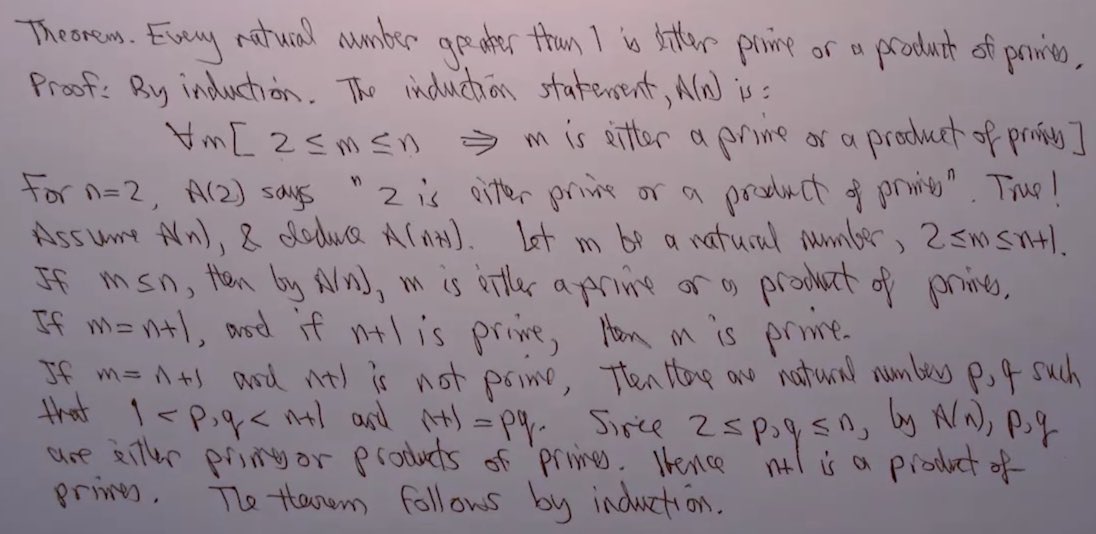 Theorem. Every natural number greater than 1 is either prime or a product of primes.
Proof: By induction. The induction statement, A(n) is:
∀m[ 2 ≤ m ≤ n ⇒ m is either a prime or a product of primes]
For n=2, A(2) says "2 is either prime or a product of primes". True!
Assume A(n), & deduce A(n+1). Let m be a natural number, 2≤m≤n+1.
If m≤n, then by A(n), m is either a prime or a product of primes.
If m=n+1, and if n+1 is prime, then m is prime.
If m=n+1 and n+1 is not prime, then there are natural numbers p,q such
that 1<p,q<n+1 and n+1=pq. Since 2≤p,q≤n, by A(n), p,q
are either primes or products of primes. Hence n+1 is a product of
primes. The theorem follows by induction.